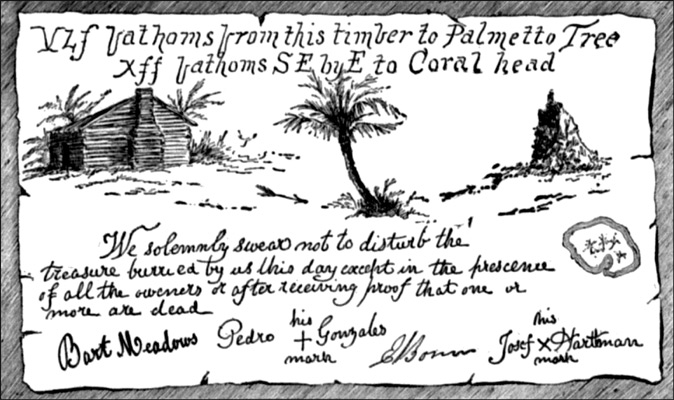 fathoms from this timber to Palmetto Tree
Xff fathoms SE by E to Coral head
We solemnly swear not to disturb the
treasure burried by us this day except in the prescence
of all the owners or after receiving proof that one or
more are dead
his his
Bart Meadows Pedro + Gonzales Josef X Hartmann
mark mark